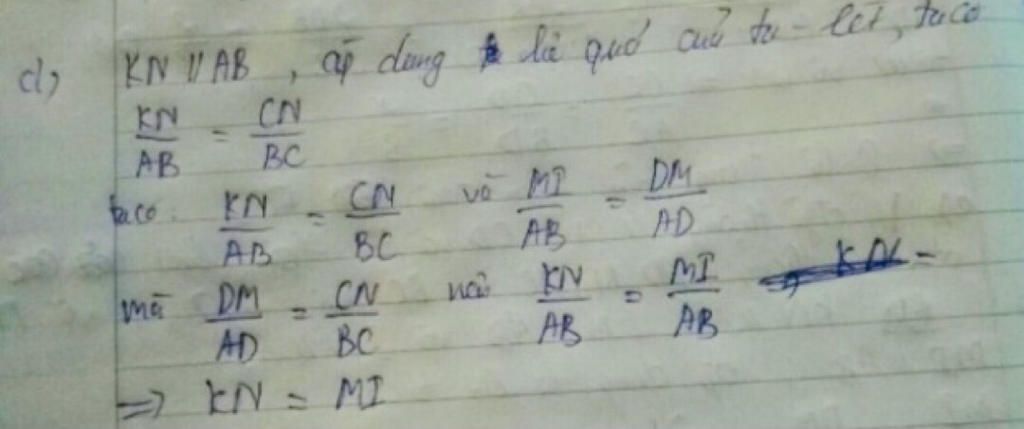 d) KN // AB, áp dụng hệ quả của ta-lét, ta có
KN/AB = CN/BC
ta có: KN/AB = CN/BC và MI/AB = DM/AD
mà DM/AD = CN/BC nên KN/AB = MI/AB
=> KN = MI